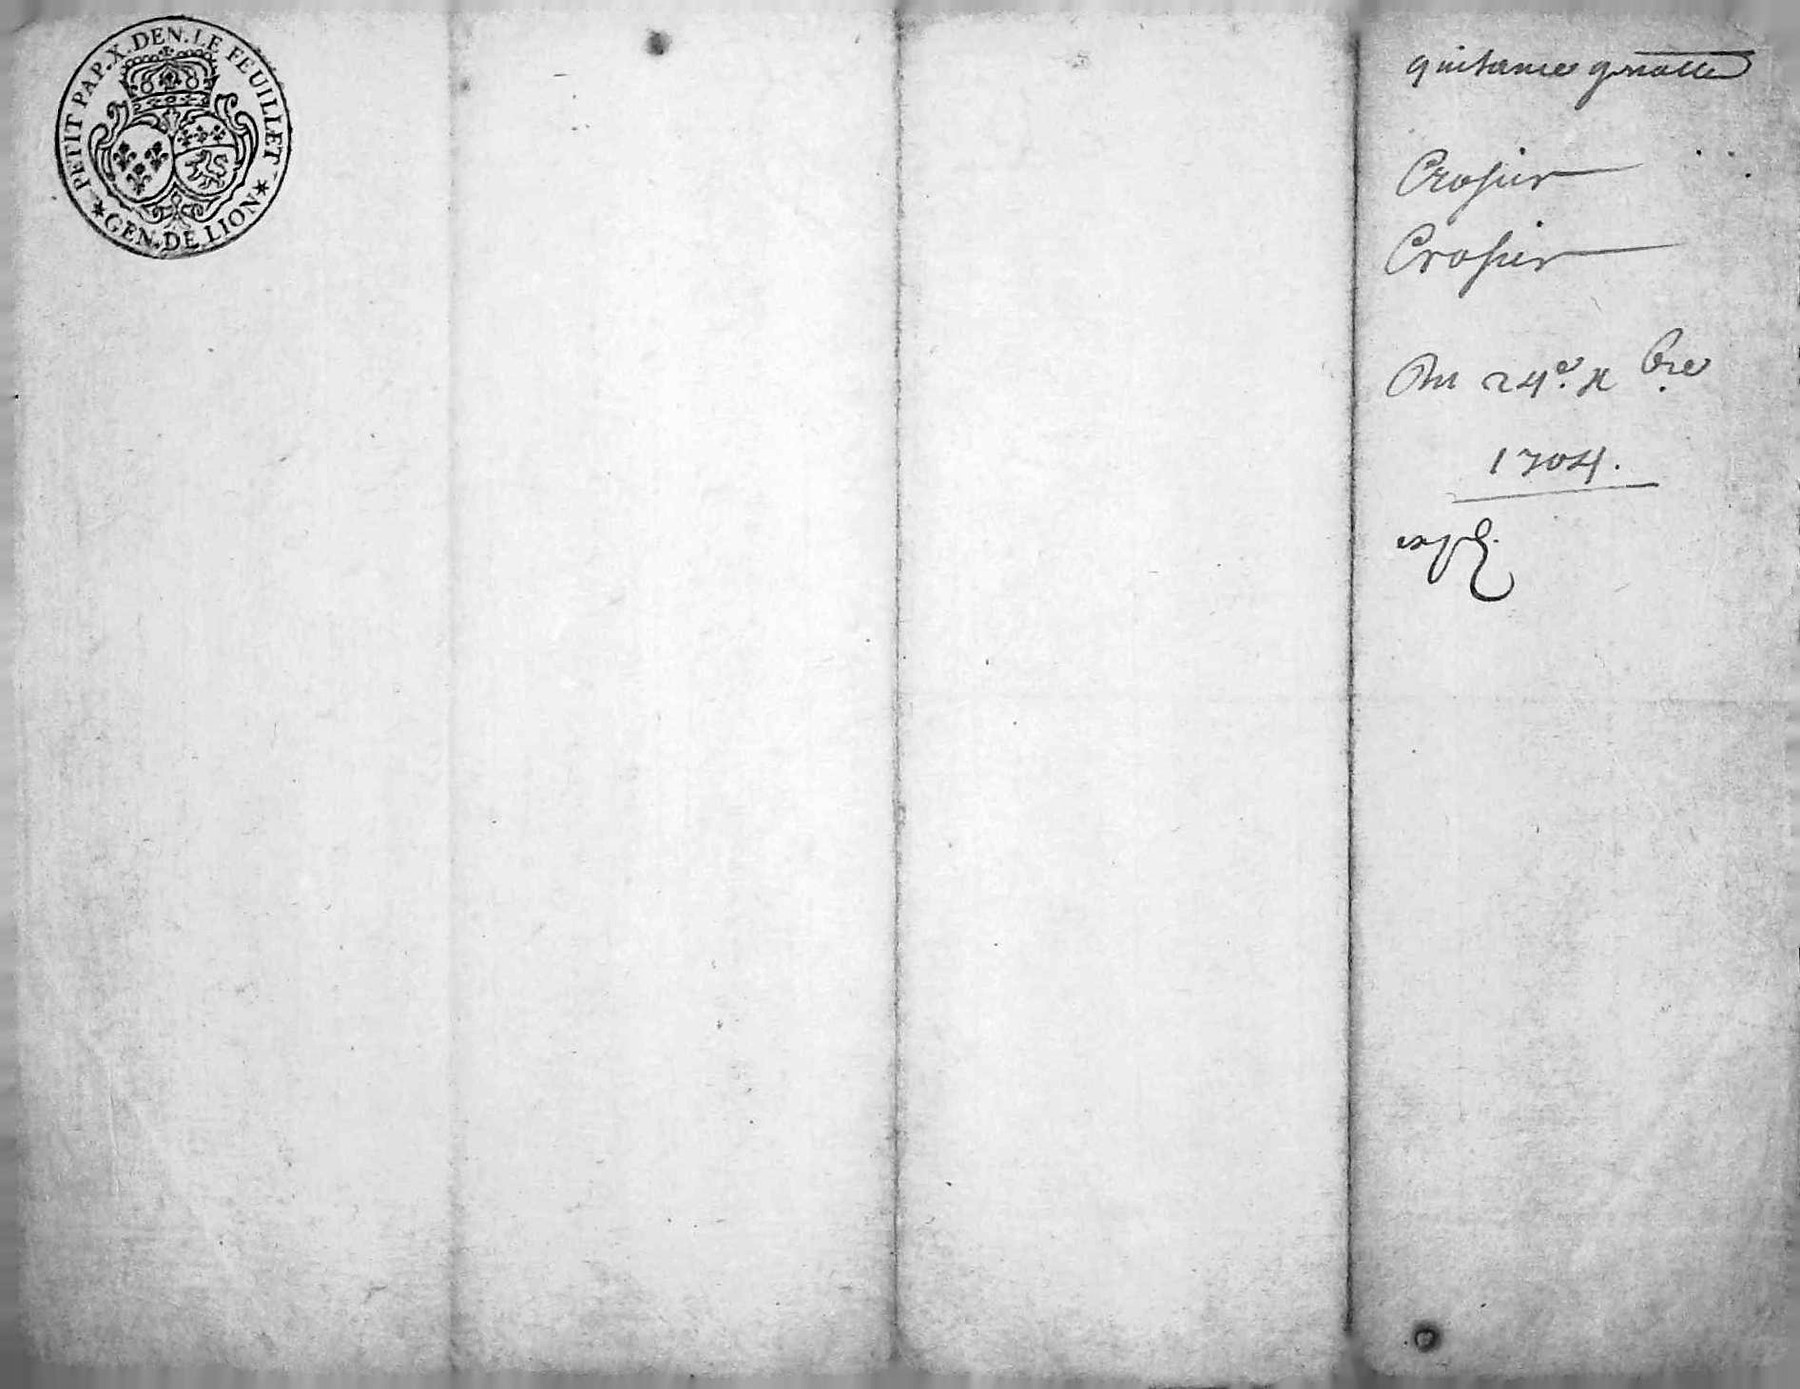 PETIT PAP. X. DEN. LE FEUILLET
* GEN. DE LION *
quitance gnalle
Crosier
Crosier
Du 24e. xbre
1704.
expe.